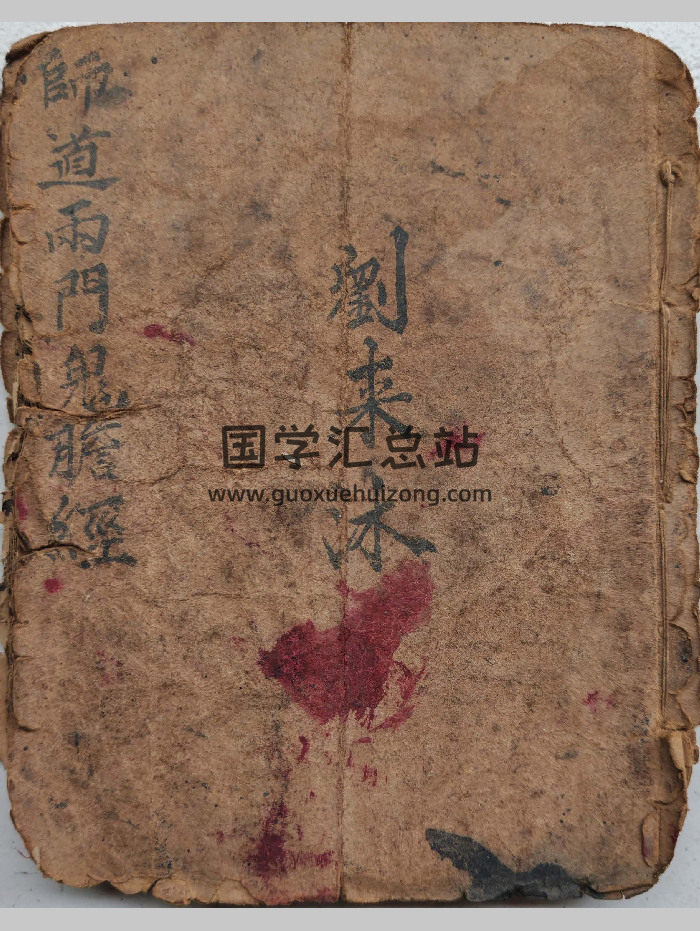 劉来沐
師道兩門鬼膽經
国学汇总站
www.guoxuehuizong.com